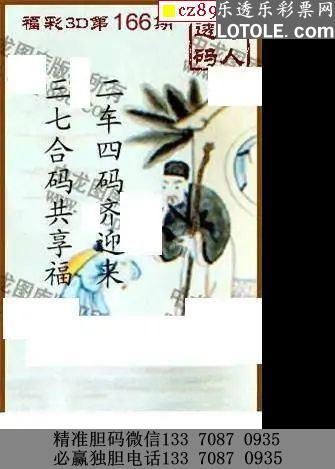 福彩3D第166期
cz89
乐透乐彩票网
LOTOLE.com
透码人
二车四码齐迎来
三七合码共享福
精准胆码微信133 7087 0935
必赢独胆电话133 7087 0935